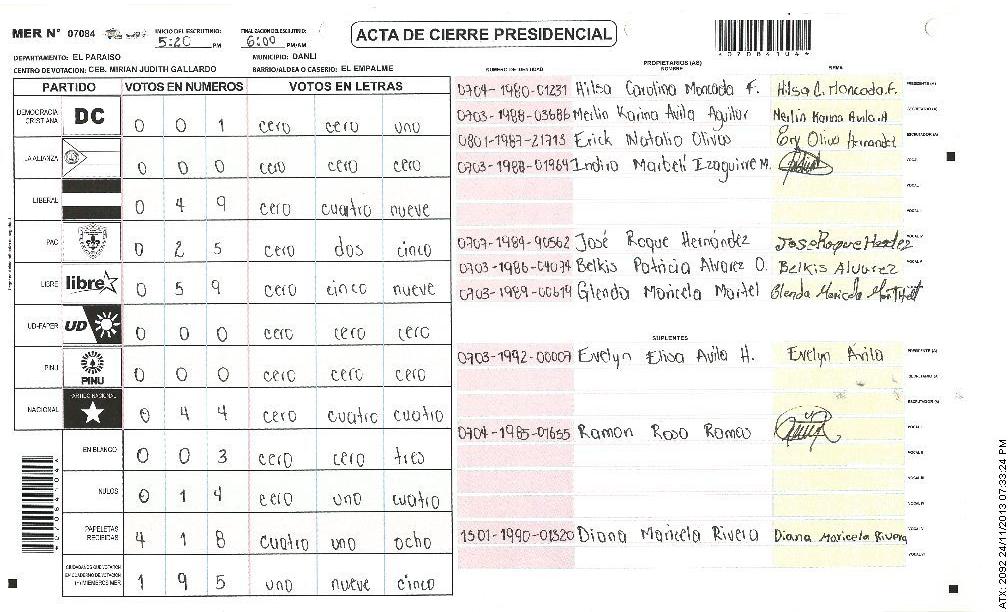 MER N° 07084 INICIO DEL ESCRUTINIO: 5:20 PM FINALIZACION DEL ESCRUTINIO: 6:00 PM/AM
ACTA DE CIERRE PRESIDENCIAL
DEPARTAMENTO: EL PARAISO MUNICIPIO: DANLI
CENTRO DE VOTACION: CEB. MIRIAN JUDITH GALLARDO BARRIO/ALDEA O CASERIO: EL EMPALME
PARTIDO VOTOS EN NUMEROS VOTOS EN LETRAS
DEMOCRACIA CRISTIANA DC 0 0 1 cero cero uno
LA ALIANZA 0 0 0 cero cero cero
LIBERAL 0 4 9 cero cuatro nueve
PAC 0 2 5 cero dos cinco
LIBRE libre 0 5 9 cero cinco nueve
UD-FAPER UD 0 0 0 cero cero cero
PINU PINU 0 0 0 cero cero cero
NACIONAL PARTIDO NACIONAL 0 4 4 cero cuatro cuatro
EN BLANCO 0 0 3 cero cero tres
NULOS 0 1 4 cero uno cuatro
PAPELETAS RECIBIDAS 4 1 8 cuatro uno ocho
CIUDADANOS QUE VOTARON EN CUADERNO DE VOTACION (+) MIEMBROS MER 1 9 5 uno nueve cinco
PROPIETARIOS (AS)
NUMERO DE IDENTIDAD NOMBRE FIRMA
0704-1980-01231 Hilsa Carolina Moncada F. Hilsa C. Moncada F. PRESIDENTE (A)
0703-1988-03686 Merlin Karina Avila Aguilar Merlin Karina Avila A SECRETARIO (A)
0801-1987-21713 Erick Natalio Olivas ESCRUTADOR (A)
0703-1988-01964 Indira Marbeli Izaguirre M. VOCAL I
0707-1989-90562 José Roque Hernández VOCAL IV
0703-1986-04074 Belkis Patricia Alvarez O. Belkis Alvarez VOCAL V
0703-1989-00614 Glenda Maricela Martel
SUPLENTES
0703-1992-00007 Evelyn Elisa Avila H. Evelyn Avila PRESIDENTE (A)
SECRETARIO (A)
ESCRUTADOR (A)
0704-1985-01655 Ramon Rosa Ramos VOCAL I
VOCAL II
VOCAL III
VOCAL IV
1501-1990-01320 Diana Maricela Rivera Diana Maricela Rivera VOCAL V
VOCAL VI
ATX: 2092 24/11/2013 07:33:24 PM